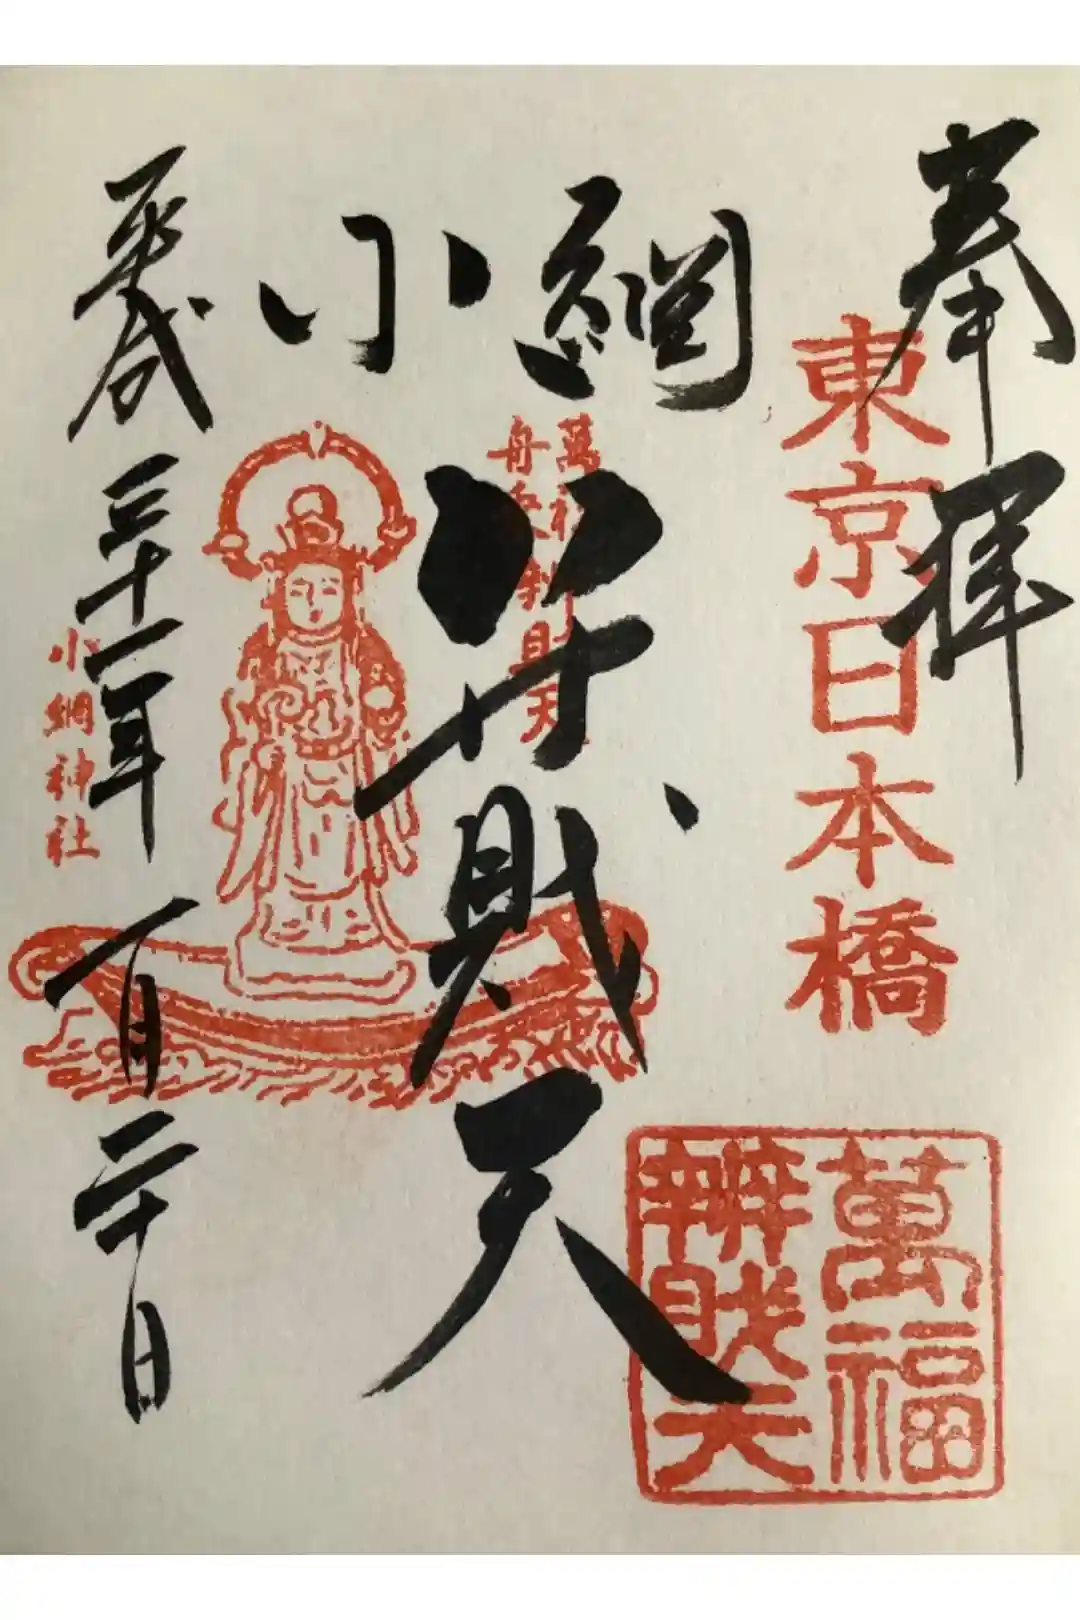 奉拝
東京日本橋
萬福
辨財天
小網
弁財天
萬福
舟乗弁財天
平成三十一年一月二十日
小網神社